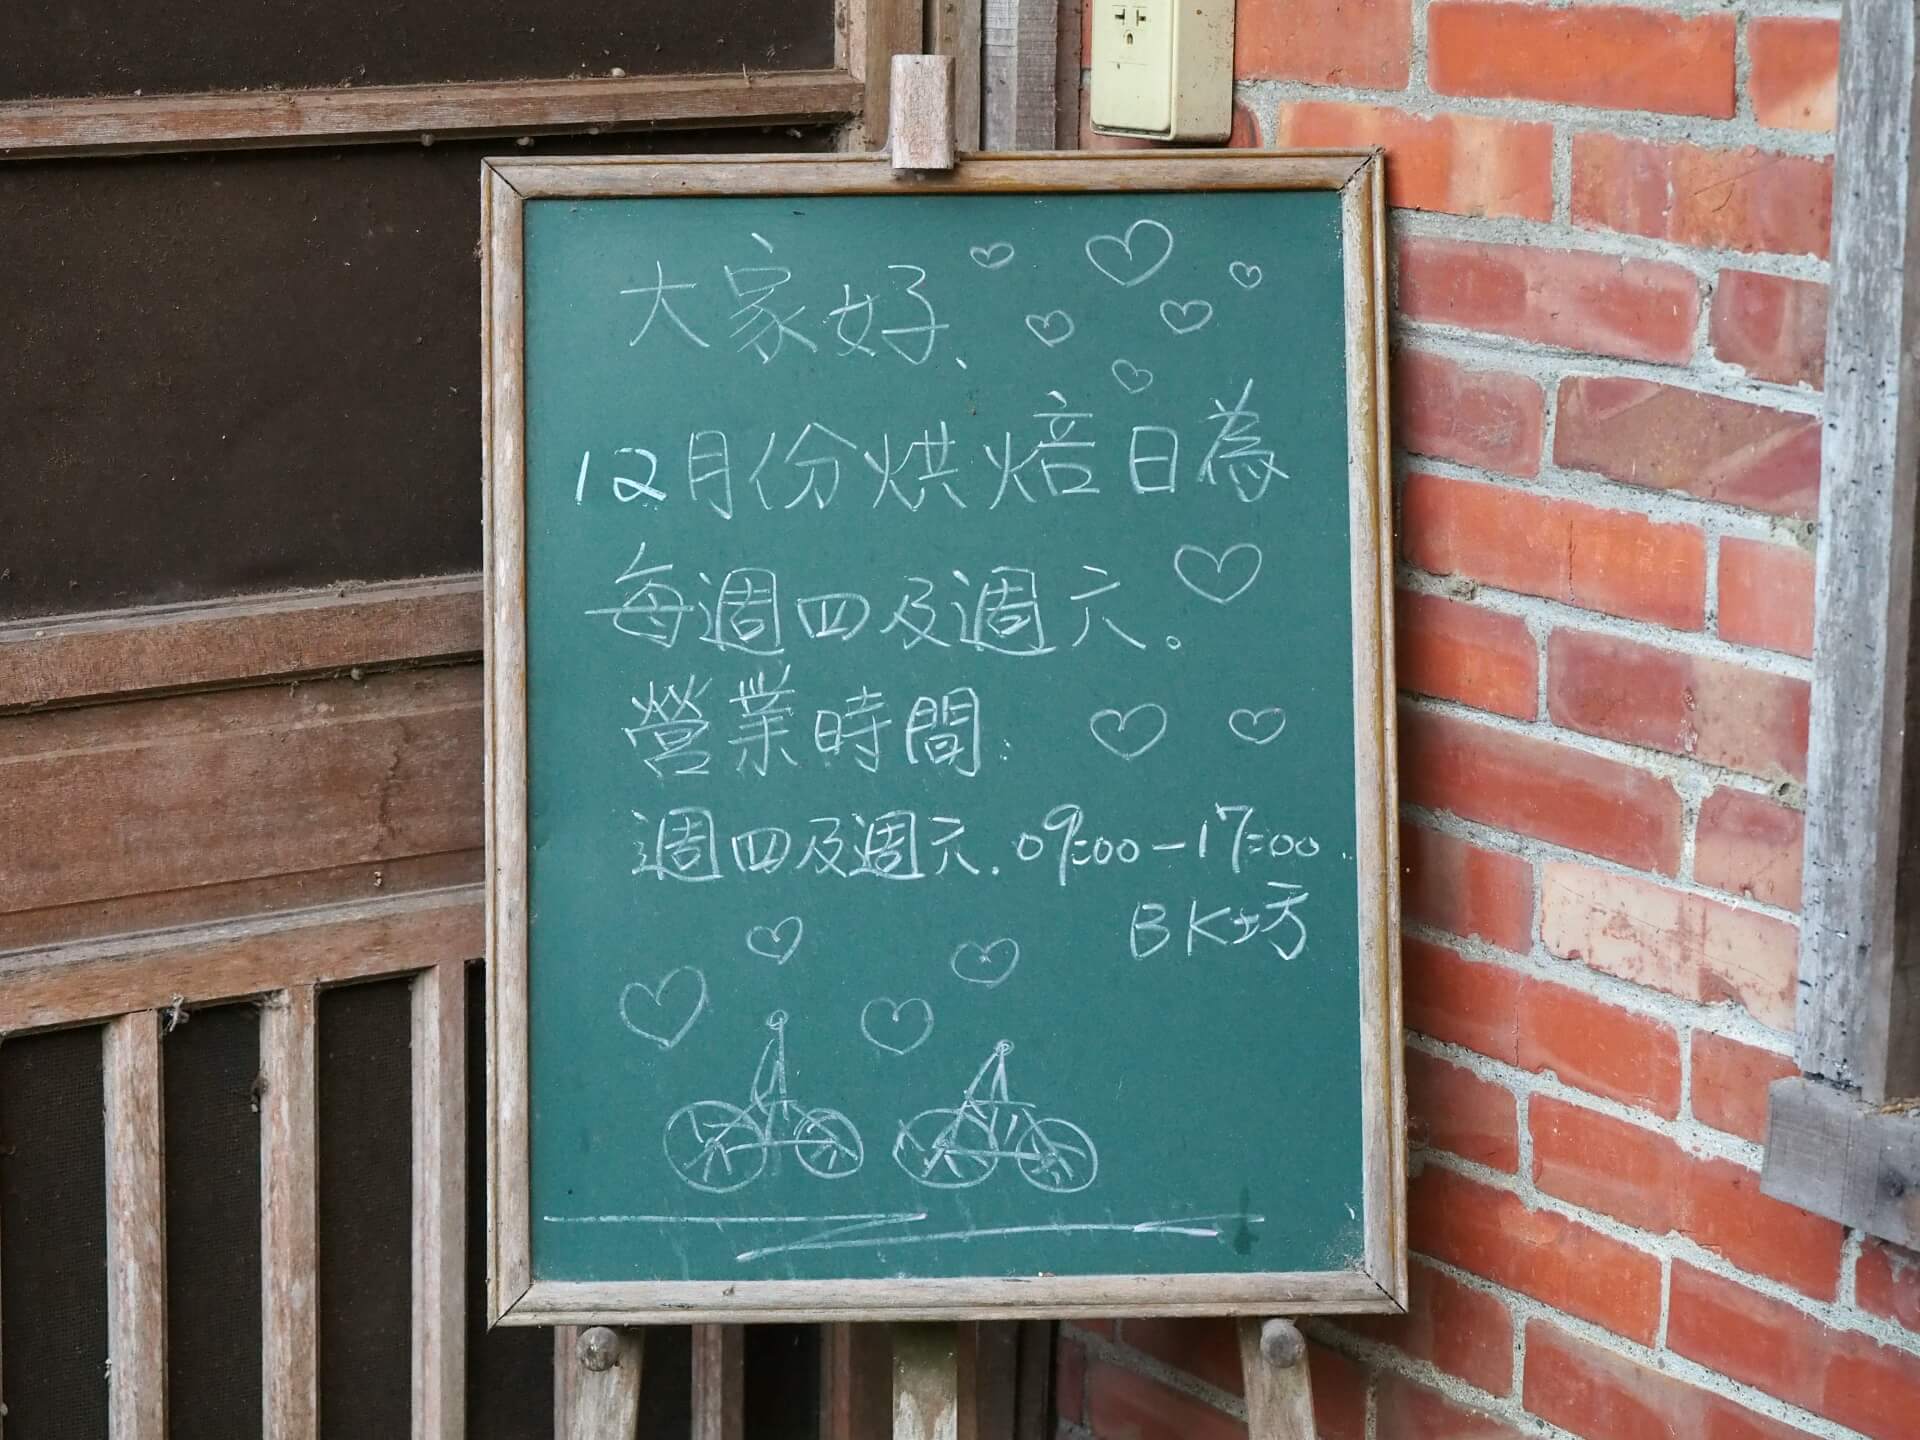 大家好、
12月份烘焙日為
每週四及週六。
營業時間:
週四及週六. 09:00-17:00
BK坊